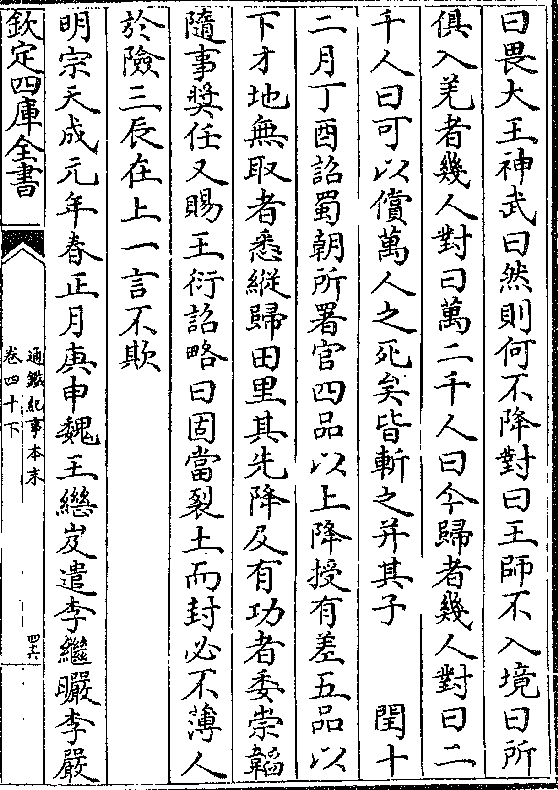 曰畏大王神武曰然則何不降對曰王師不入境曰所
俱入羌者幾人對曰萬二千人曰今歸者幾人對曰二
千人曰可以償萬人之死矣皆斬之并其子　閏十
二月丁酉詔蜀朝所署官四品以上降授有差五品以
下才地無取者悉縱歸田里其先降及有功者委崇韜
隨事奬任又賜王衍詔略曰固當裂土而封必不薄人
於險三辰在上一言不欺
明宗天成元年春正月庚申魏王繼岌遣李繼曮李嚴
欽定四庫全書
通鑑紀事本末
卷四十下
四六